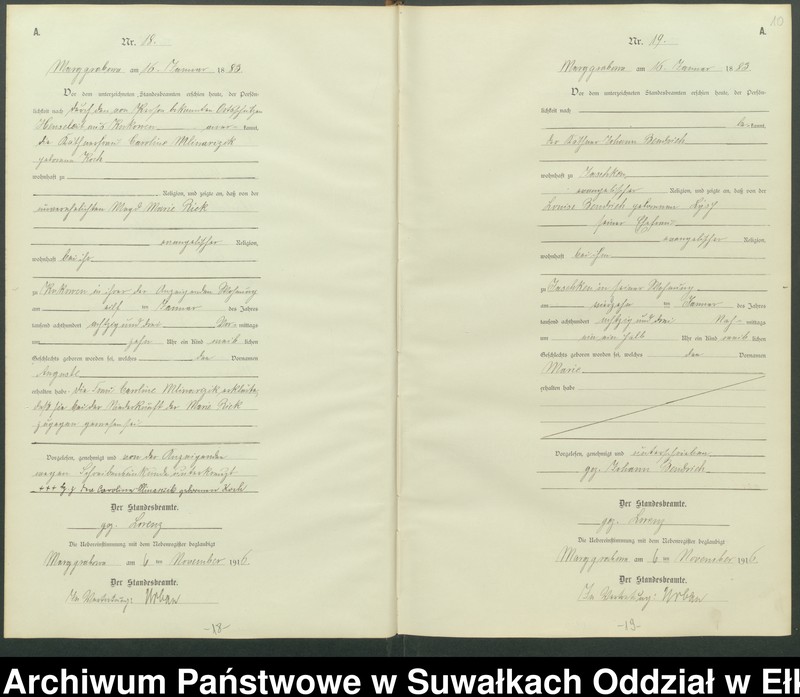 A.
Nr. 18.
Marggrabowa am 16. Januar 1883
Vor dem unterzeichneten Standesbeamten erschien heute, der Persön-
lichkeit nach durch den von Person bekannten Ortsschulzen
aus Kukowen aner- kannt,
die Käthnerfrau Caroline Mlinarczik
geborene Koch
wohnhaft zu
Religion, und zeigte an, daß von der
unverehelichten Magd Marie Rick
evangelischer Religion,
wohnhaft bei ihr
zu Kukowen in ihrer der Anzeigenden Wohnung
am elf ten Januar des Jahres
tausend achthundert achtzig und drei Vor- mittags
um zehn Uhr ein Kind weib lichen
Geschlechts geboren worden sei, welches den Vornamen
Auguste
erhalten habe. Die Frau Caroline Mlinarczik erklärte,
daß sie bei der Niederkunft der Marie Rick
zugegen gewesen sei.
Vorgelesen, genehmigt und von der Anzeigenden
wegen Schreibensunkunde unterkreuzt
+++ der Caroline Mlinarzick geborenen Koch
Der Standesbeamte.
gez. Lorenz
Die Uebereinstimmung mit dem Nebenregister beglaubigt
Marggrabowa am 6 ten November 1916
Der Standesbeamte.
In Vertretung: Urban
-18-
10
A.
Nr. 19.
Marggrabowa am 16. Januar 1883
Vor dem unterzeichneten Standesbeamten erschien heute, der Persön-
lichkeit nach
be- kannt,
der Käthner Johann Bendrich
wohnhaft zu Jaschken
evangelischer Religion, und zeigte an, daß von der
Louise Bendrich geborenen
seiner Ehefrau
evangelischer Religion,
wohnhaft bei ihm
zu Jaschken in seiner Wohnung
am ten Januar des Jahres
tausend achthundert achtzig und drei Nach- mittags
um ein ein halb Uhr ein Kind weib lichen
Geschlechts geboren worden sei, welches den Vornamen
Marie
erhalten habe
Vorgelesen, genehmigt und unterschrieben
gez. Johann Bendrich
Der Standesbeamte.
gez. Lorenz
Die Uebereinstimmung mit dem Nebenregister beglaubigt
Marggrabowa am 6 ten November 1916
Der Standesbeamte.
In Vertretung: Urban
-19-
Archiwum Państwowe w Suwałkach Oddział w Eł